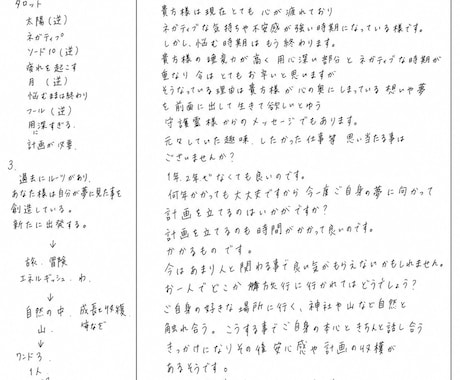 タロット
太陽（逆）
ネガティブ
ソード10（逆）
疲れを起こす
月（逆）
悩むまは終わり
フール（逆）
用深すぎる
に
計画が必要
3.
過去にルーツがあり、
あなた様は自分が夢に見た事を
創造している。
新たに出発する。
↓
旅、冒険
エネルギッシュ、わ、
↓
自然の中、成長と収穫
山、
↓
ワンド3
1人
貴方様は現在とても心が疲れており
ネガティブな気持ちや不安感が強い時期になっている様です。
しかし、悩む時期はもう終わります。
貴方様の感受力が高く用心深い部分とネガティブな時期が
重なり今はとてもお辛いと思いますが
そうなっている理由は貴方様が心の奥にしまっている想いや夢
を前面に出して生きて欲しいとゆう
守護霊様からのメッセージでもあります。
元々していた趣味、したかった仕事等思い当たる事は
ございませんか？
1年2年でなくても良いのです。
何年かかっても大丈夫ですから今一度ご自身の夢に向かって
計画を立てるのはいかがですか？
計画を立てるのも時間がかかって良いのです。
かかるものです。
今はあまり人と関わる事で良い気がもらえないかもしれません。
お一人でどこか旅行に行かれてはどうでしょう？
ご自身の好きな場所に行く、神社や山など自然と
触れ合う。こうする事でご自身の本心ときちんと話し合う
きっかけになりその後安心感や計画の収穫が
あるそうです。